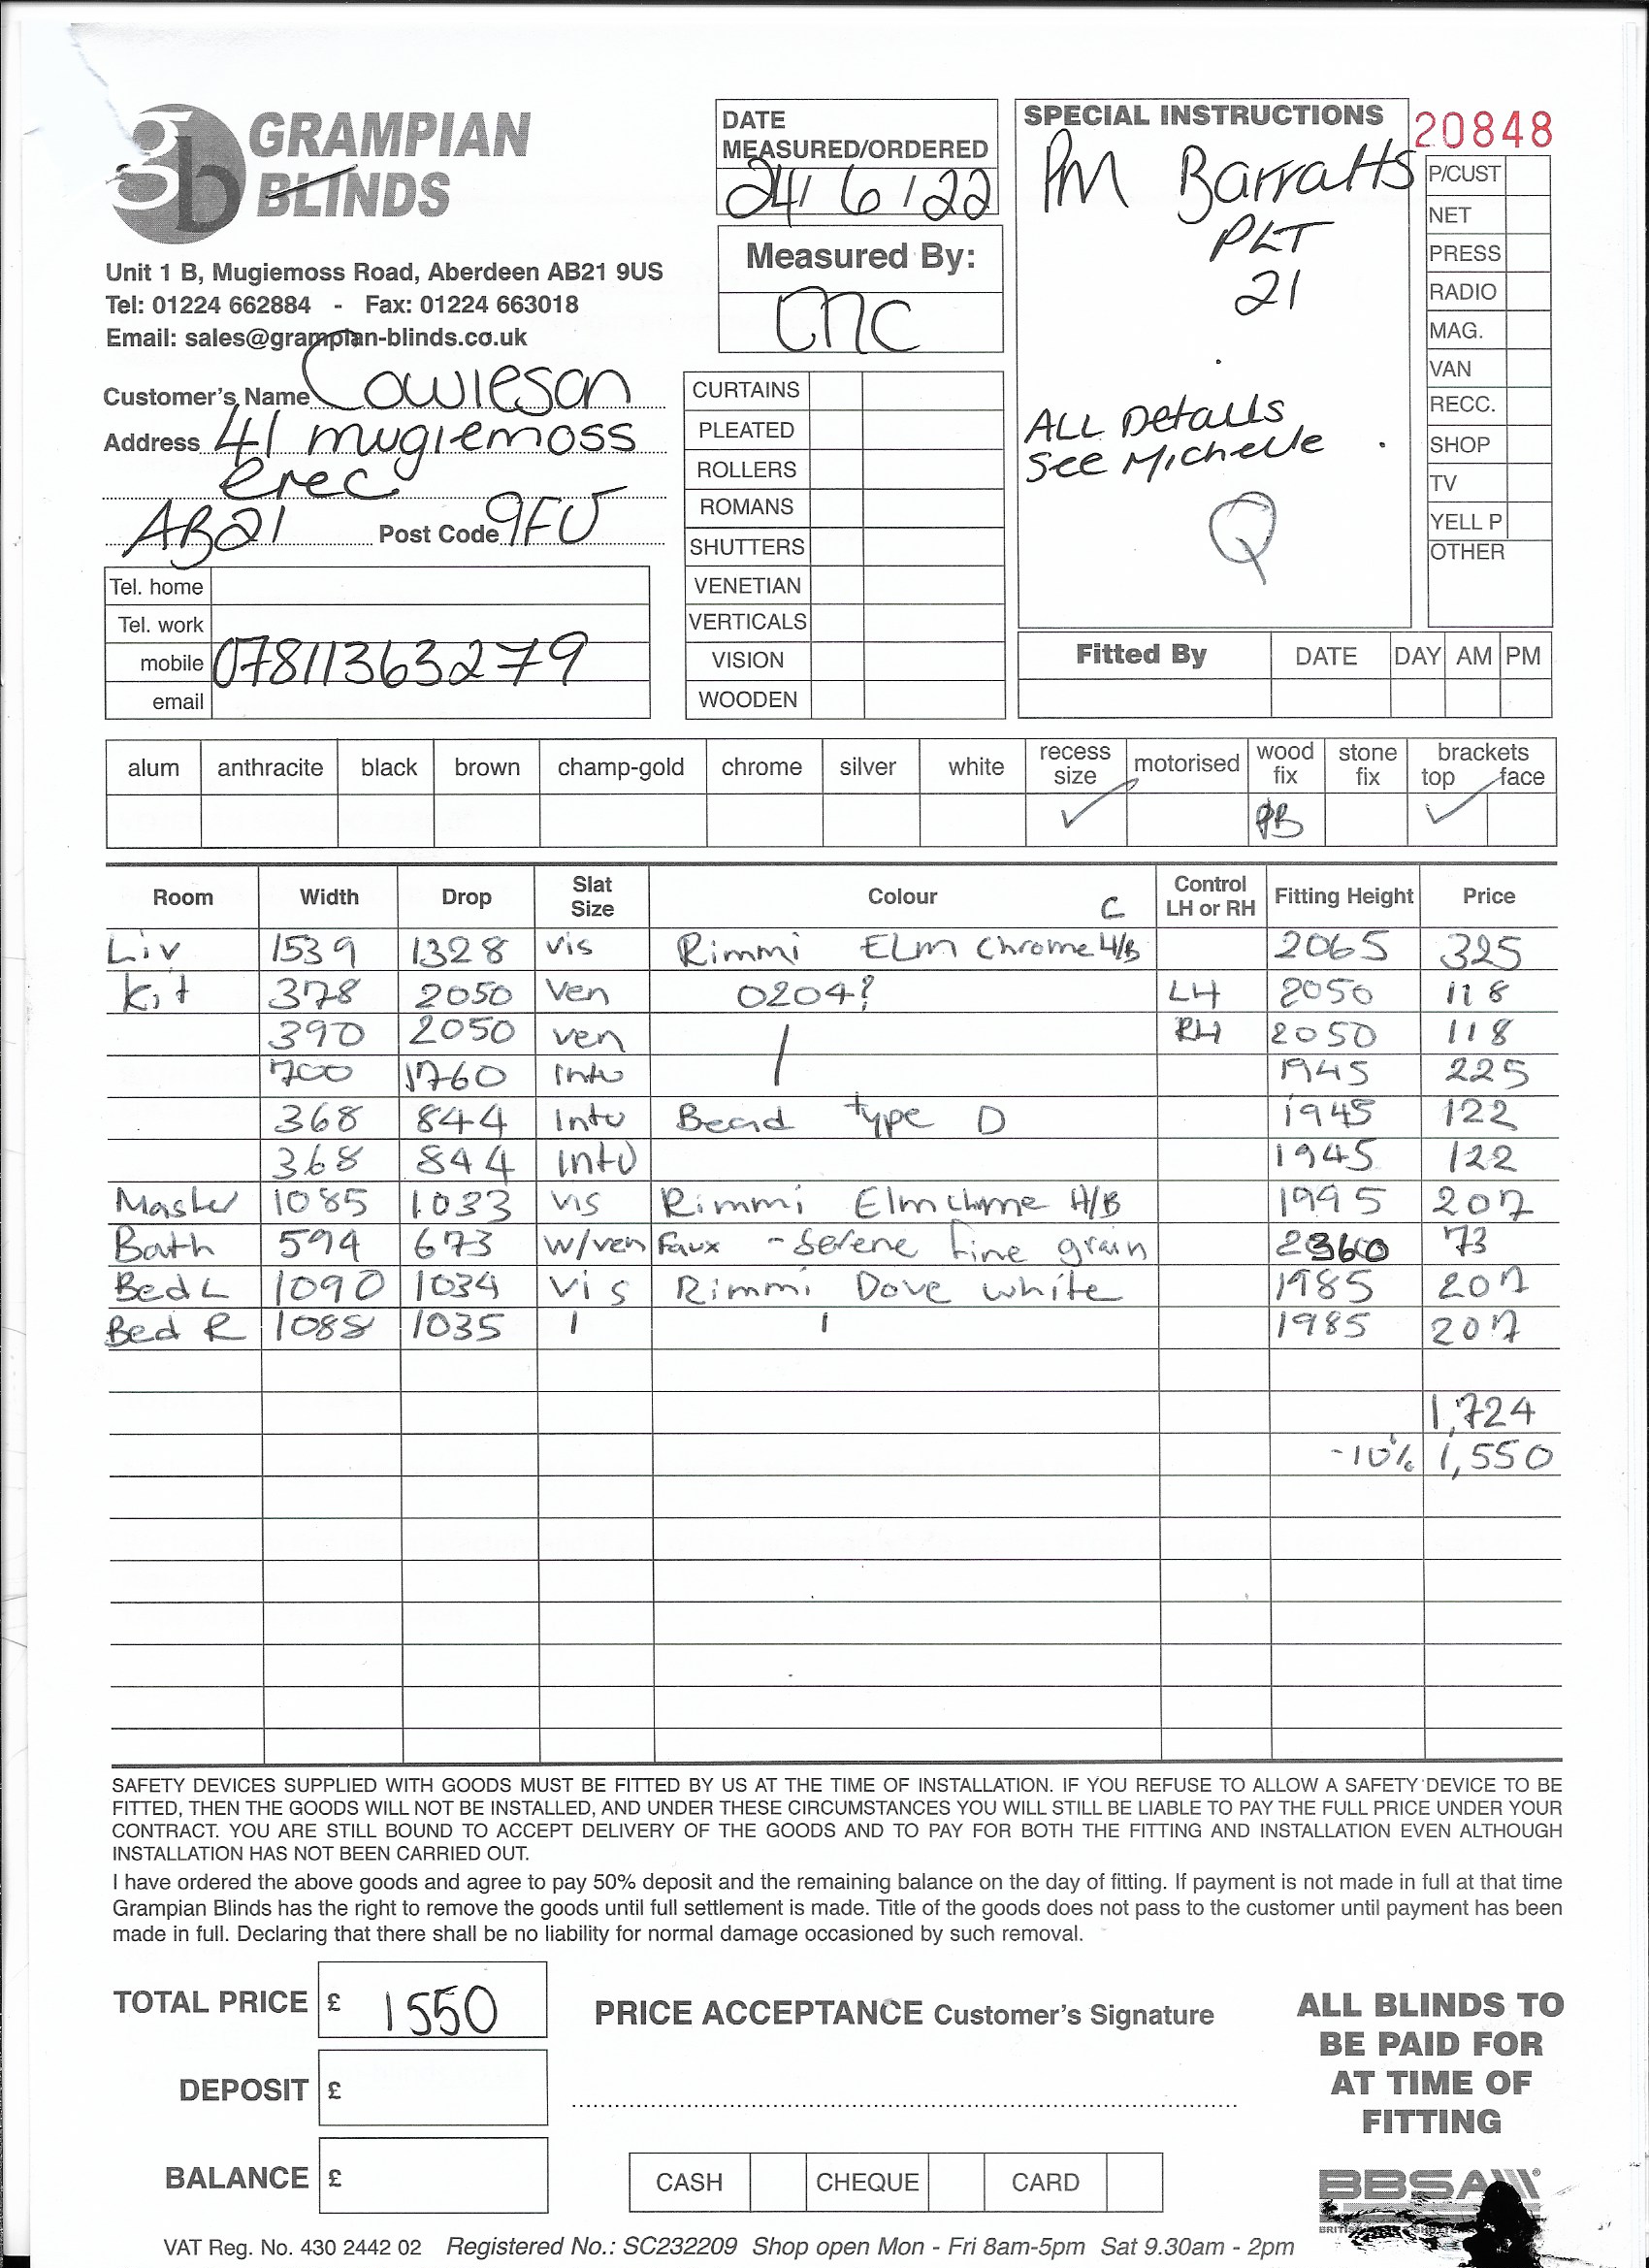 GRAMPIAN
BLINDS
Unit 1 B, Mugiemoss Road, Aberdeen AB21 9US
Tel: 01224 662884 - Fax: 01224 663018
Email: sales@grampian-blinds.co.uk
DATE
MEASURED/ORDERED
24/6/22
Measured By:
CMC
SPECIAL INSTRUCTIONS
PM Barratts
PLT
21
ALL Details
See Michelle
Q
20848
P/CUST
NET
PRESS
RADIO
MAG.
VAN
RECC.
SHOP
TV
YELL P
OTHER
Customer's Name Cowieson
Address 41 mugiemoss
erec
AB21 Post Code 9FU
Tel. home
Tel. work
mobile 07811363279
email
CURTAINS
PLEATED
ROLLERS
ROMANS
SHUTTERS
VENETIAN
VERTICALS
VISION
WOODEN
Fitted By DATE DAY AM PM
alum anthracite black brown champ-gold chrome silver white recess size motorised wood fix stone fix brackets top face
✓ PB ✓
Room Width Drop Slat Size Colour C Control LH or RH Fitting Height Price
Liv 1539 1328 vis Rimmi ELm Chrome H/B 2065 325
Kit 378 2050 Ven 0204? LH 2050 118
390 2050 ven / RH 2050 118
700 1760 Intu 1945 225
368 844 Intu Bead type D 1945 122
368 844 Intu 1945 122
Master 1085 1033 vis Rimmi Elm chrme H/B 1995 207
Bath 594 673 w/ven Faux - Serene fine grain 2360 73
Bed L 1090 1034 Vis Rimmi Dove white 1985 207
Bed R 1088 1035 ı ı 1985 207
1,724
-10% 1,550
SAFETY DEVICES SUPPLIED WITH GOODS MUST BE FITTED BY US AT THE TIME OF INSTALLATION. IF YOU REFUSE TO ALLOW A SAFETY DEVICE TO BE
FITTED, THEN THE GOODS WILL NOT BE INSTALLED, AND UNDER THESE CIRCUMSTANCES YOU WILL STILL BE LIABLE TO PAY THE FULL PRICE UNDER YOUR
CONTRACT. YOU ARE STILL BOUND TO ACCEPT DELIVERY OF THE GOODS AND TO PAY FOR BOTH THE FITTING AND INSTALLATION EVEN ALTHOUGH
INSTALLATION HAS NOT BEEN CARRIED OUT.
I have ordered the above goods and agree to pay 50% deposit and the remaining balance on the day of fitting. If payment is not made in full at that time
Grampian Blinds has the right to remove the goods until full settlement is made. Title of the goods does not pass to the customer until payment has been
made in full. Declaring that there shall be no liability for normal damage occasioned by such removal.
TOTAL PRICE £ 1550
DEPOSIT £
BALANCE £
PRICE ACCEPTANCE Customer's Signature
CASH CHEQUE CARD
ALL BLINDS TO
BE PAID FOR
AT TIME OF
FITTING
BBSA
VAT Reg. No. 430 2442 02 Registered No.: SC232209 Shop open Mon - Fri 8am-5pm Sat 9.30am - 2pm